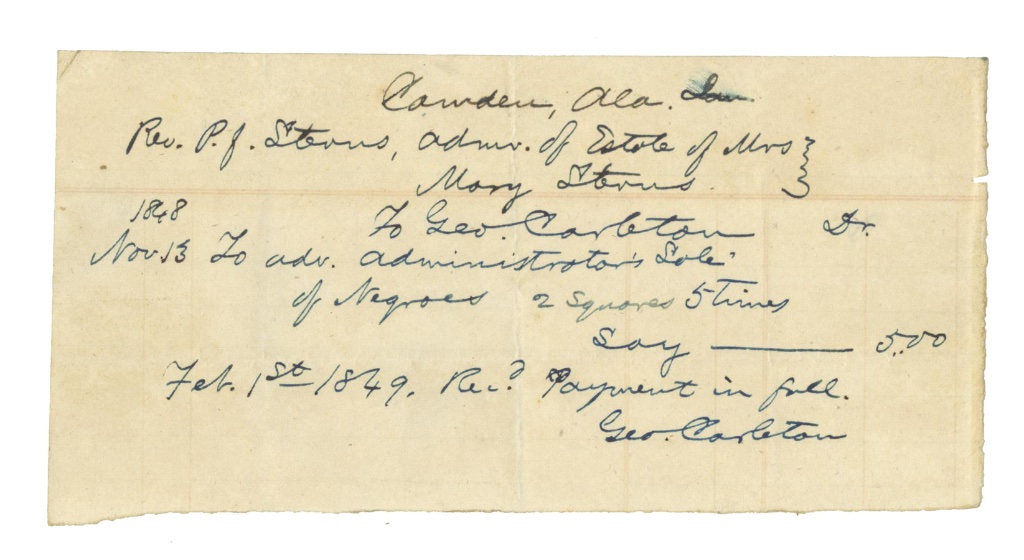 Camden, Ala. Jan.
Rev. P. J. Sterns, admr. of Estate of Mrs
Mary Sterns.
1848
To Geo. Carleton Dr.
Nov 13 To adv. administrator's Sale
of Negroes 2 Squares 5 Times
Say 5.00
Feb. 1st 1849. Rec.d Payment in full.
Geo. Carleton